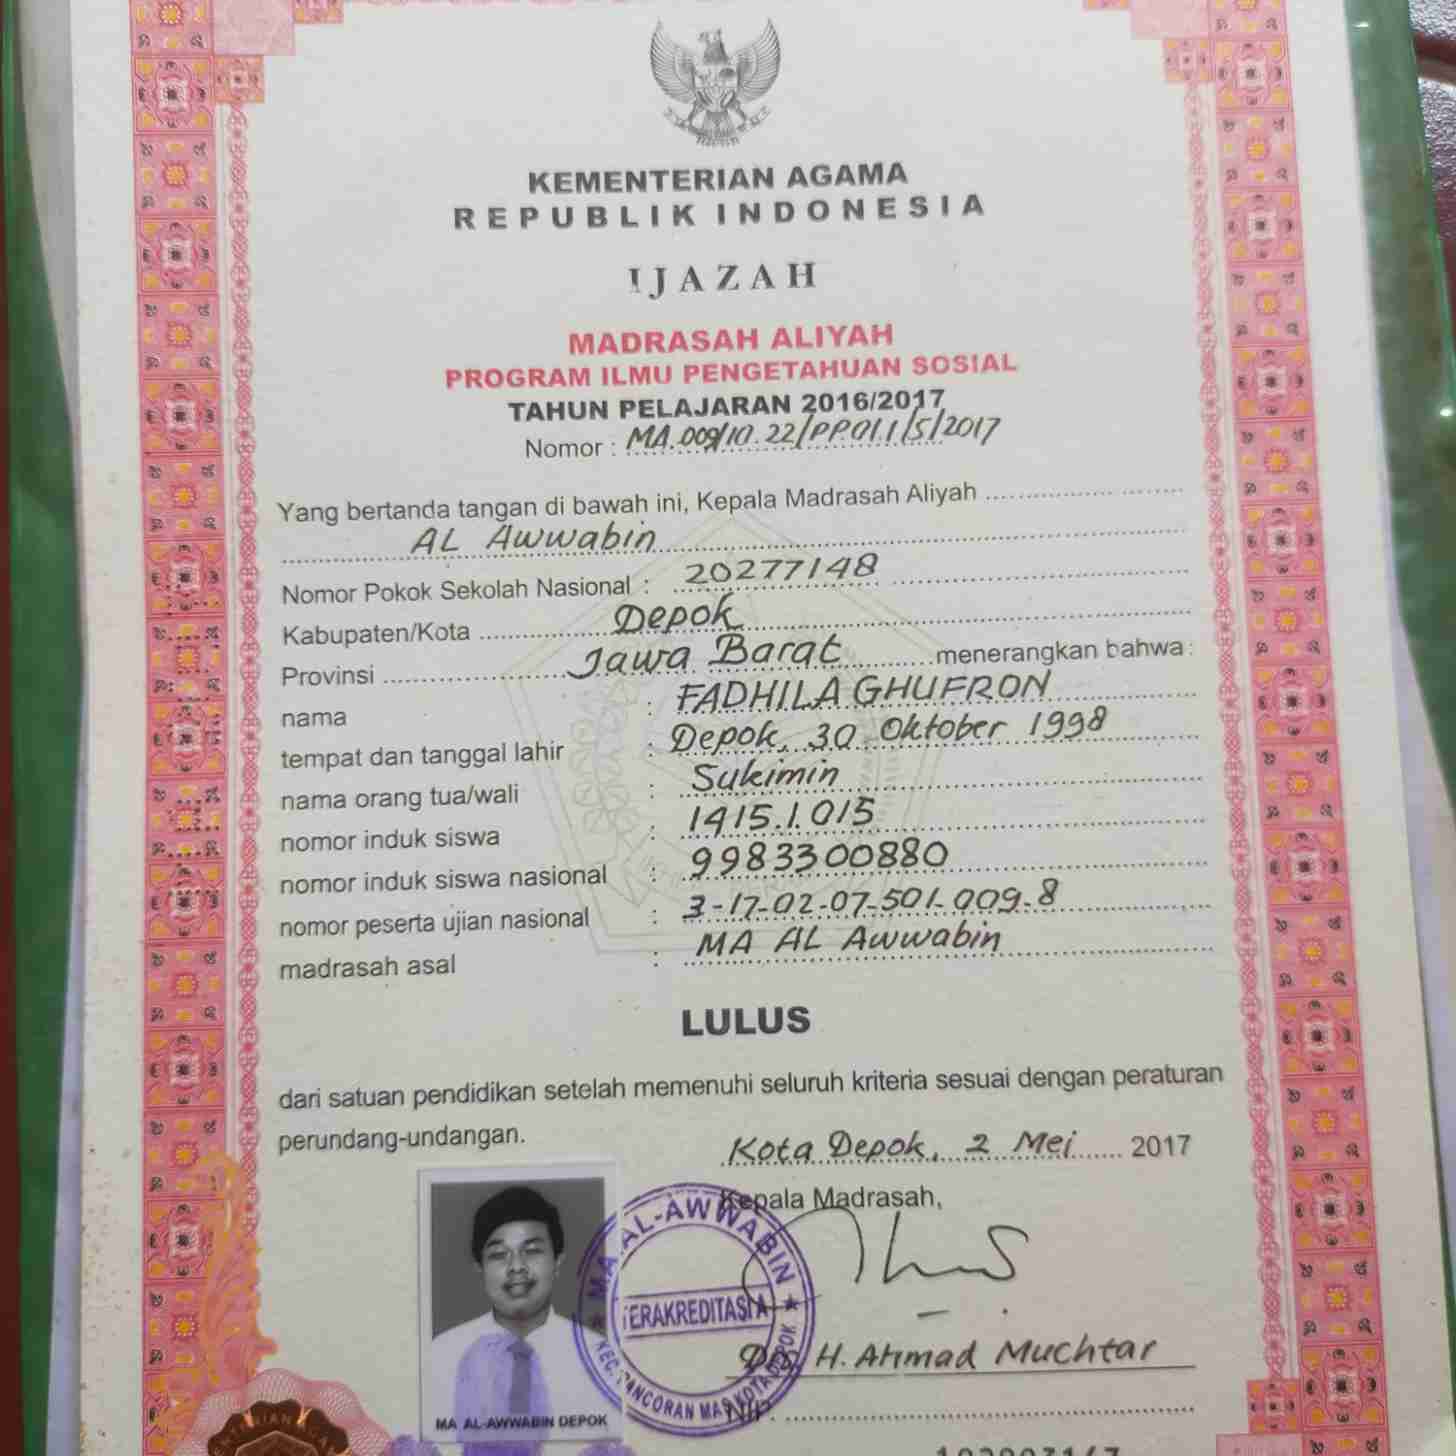 KEMENTERIAN AGAMA
REPUBLIK INDONESIA
IJAZAH
MADRASAH ALIYAH
PROGRAM ILMU PENGETAHUAN SOSIAL
TAHUN PELAJARAN 2016/2017
Nomor : MA.009/10.22/PP.01.1/5/2017
Yang bertanda tangan di bawah ini, Kepala Madrasah Aliyah
AL Awwabin
Nomor Pokok Sekolah Nasional : 20277148
Kabupaten/Kota Depok
Provinsi Jawa Barat menerangkan bahwa :
nama : FADHILA GHUFRON
tempat dan tanggal lahir : Depok, 30 Oktober 1998
nama orang tua/wali : Sukimin
nomor induk siswa : 1415.1.015
nomor induk siswa nasional : 9983300880
nomor peserta ujian nasional : 3-17-02-07-501-009-8
madrasah asal : MA AL Awwabin
LULUS
dari satuan pendidikan setelah memenuhi seluruh kriteria sesuai dengan peraturan
perundang-undangan.
Kota Depok, 2 Mei 2017
Kepala Madrasah,
MA. AL-AWWABIN
TERAKREDITASI A
KEC. PANCORAN MAS KOTA DEPOK
Drs. H. Ahmad Muchtar
NIP.
MA AL-AWWABIN DEPOK